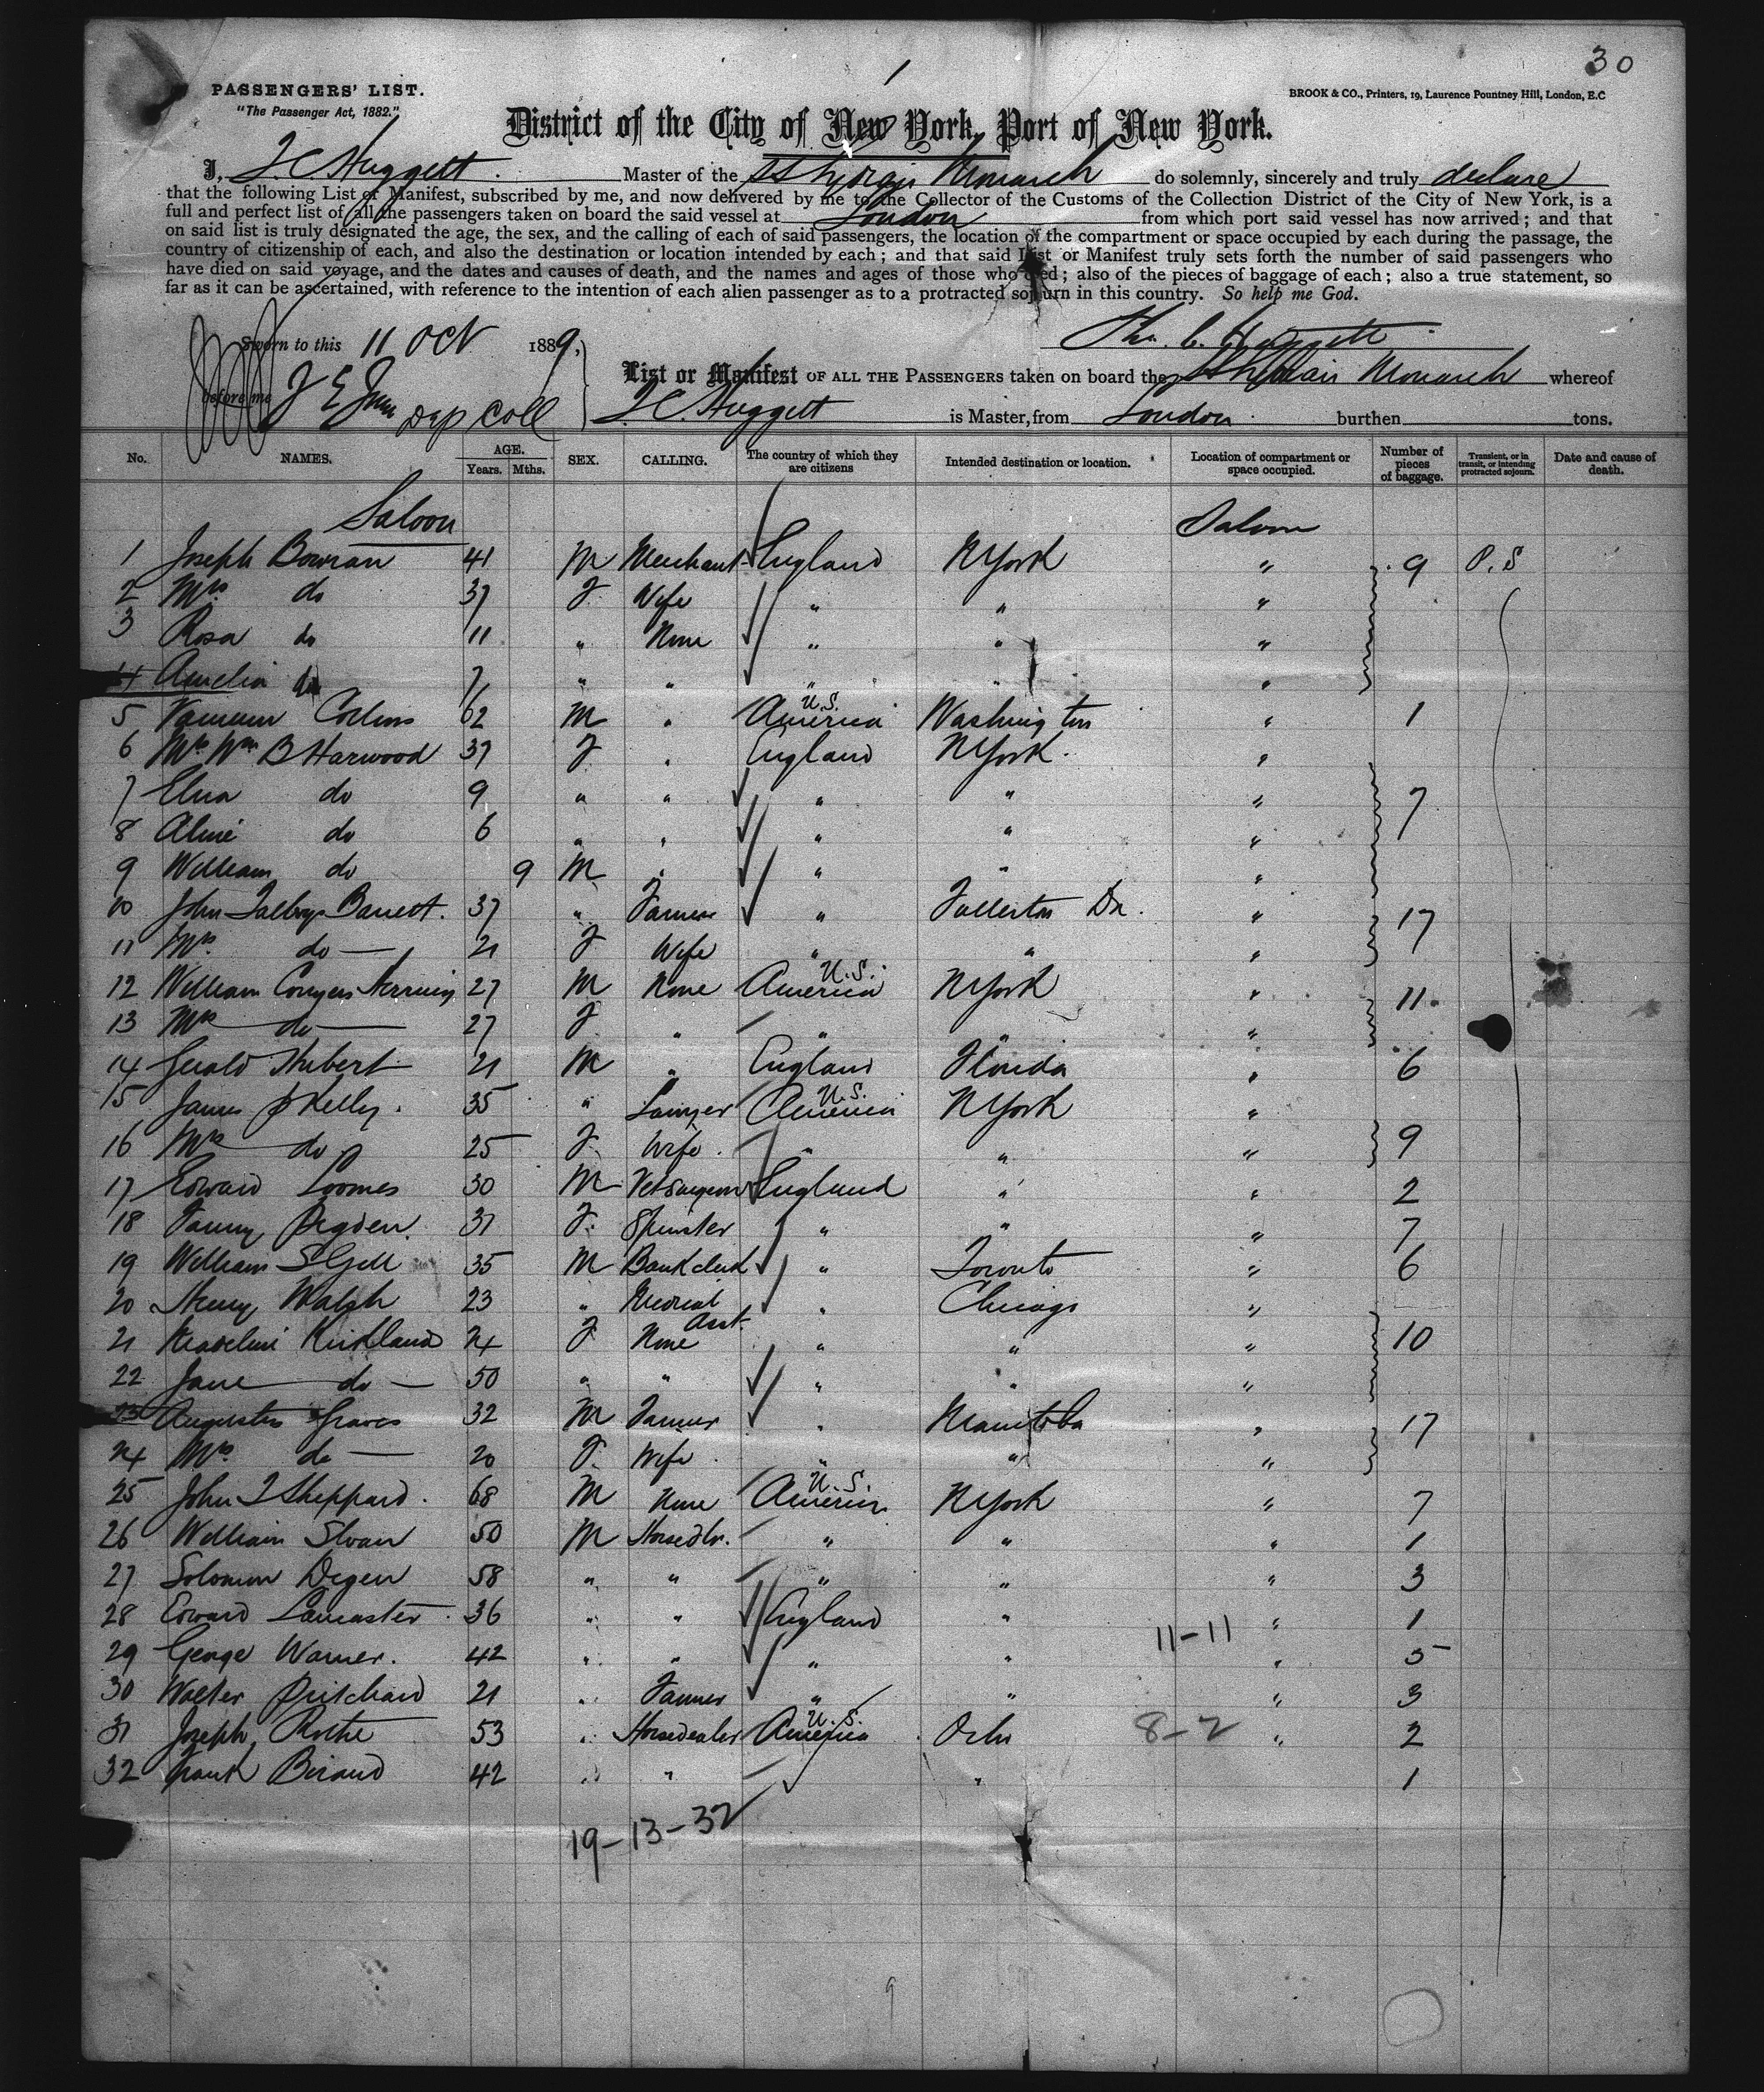 30
1
PASSENGERS' LIST.
"The Passenger Act, 1882."
BROOK & CO., Printers, 19, Laurence Pountney Hill, London, E.C
District of the City of New York, Port of New York.
I, T. C Huggett. Master of the SS Lydian Monarch do solemnly, sincerely and truly declare
that the following List or Manifest, subscribed by me, and now delivered by me to the Collector of the Customs of the Collection District of the City of New York, is a
full and perfect list of all the passengers taken on board the said vessel at London from which port said vessel has now arrived; and that
on said list is truly designated the age, the sex, and the calling of each of said passengers, the location of the compartment or space occupied by each during the passage, the
country of citizenship of each, and also the destination or location intended by each; and that said List or Manifest truly sets forth the number of said passengers who
have died on said voyage, and the dates and causes of death, and the names and ages of those who died; also of the pieces of baggage of each; also a true statement, so
far as it can be ascertained, with reference to the intention of each alien passenger as to a protracted sojourn in this country. So help me God.
Sworn to this 11 Oct 1889,
Tho. C. Huggett
before me J E Dep Coll
List or Manifest OF ALL THE PASSENGERS taken on board the SS Lydian Monarch whereof
T. C. Huggett is Master, from London burthen tons.
No. NAMES. AGE. Years. Mths. SEX. CALLING. The country of which they are citizens Intended destination or location. Location of compartment or space occupied. Number of pieces of baggage. Transient, or in transit, or intending protracted sojourn. Date and cause of death.
Saloon Saloon
1 Joseph Bowran 41 M Merchant England N York " 9 P.S
2 Mrs do 37 F Wife " " "
3 Rosa do 11 " None " " "
4 Amelia do 7 " " " " "
5 Collins 62 M " U.S. America Washington " 1
6 Mrs Wm B Harwood 37 F " England N York "
7 Elna do 9 " " " " " 7
8 Aline do 6 " " " " "
9 William do 9 M " " " "
10 John Barrett. 37 " Farmer " Fullerton Da. " 17
11 Mrs do 21 F Wife " " "
12 William Conyers Herring 27 M None U.S. America N York " 11
13 Mrs do 27 F " " " "
14 Gerald Hubert 21 M " England Florida " 6
15 James P Kelly. 35 " Lawyer U.S. America N York "
16 Mrs do 25 F Wife. " " " 9
17 Edward Loomes 30 M Vet Surgeon England " " 2
18 Fanny Ogden. 37 F. Spinster " " " 7
19 William S Gell 35 M Bank clerk " Toronto " 6
20 Henry Walsh 23 " Medical Asst. " Chicago "
21 Madeline Kirkland 24 F None " " " 10
22 Jane do 50 " " " " "
23 Augustus Graves 32 M Farmer " Manitoba " 17
24 Mrs do 20 F. Wife " " "
25 John T Sheppard. 68 M None U.S. America N York " 7
26 William Sloan 50 M Horsedlr. " " " 1
27 Solomon Degen 58 " " " " " 3
28 Edward Lancaster 36 " " England " " 1
29 George Warner. 42 " " " " 11-11 " 5
30 Walter Pritchard 21 " Farmer " " " 3
31 Joseph Rothe 53 " Horsedealer U.S. America Ohio 8-2 " 2
32 Frank 42 " " " 1
19-13-32
9